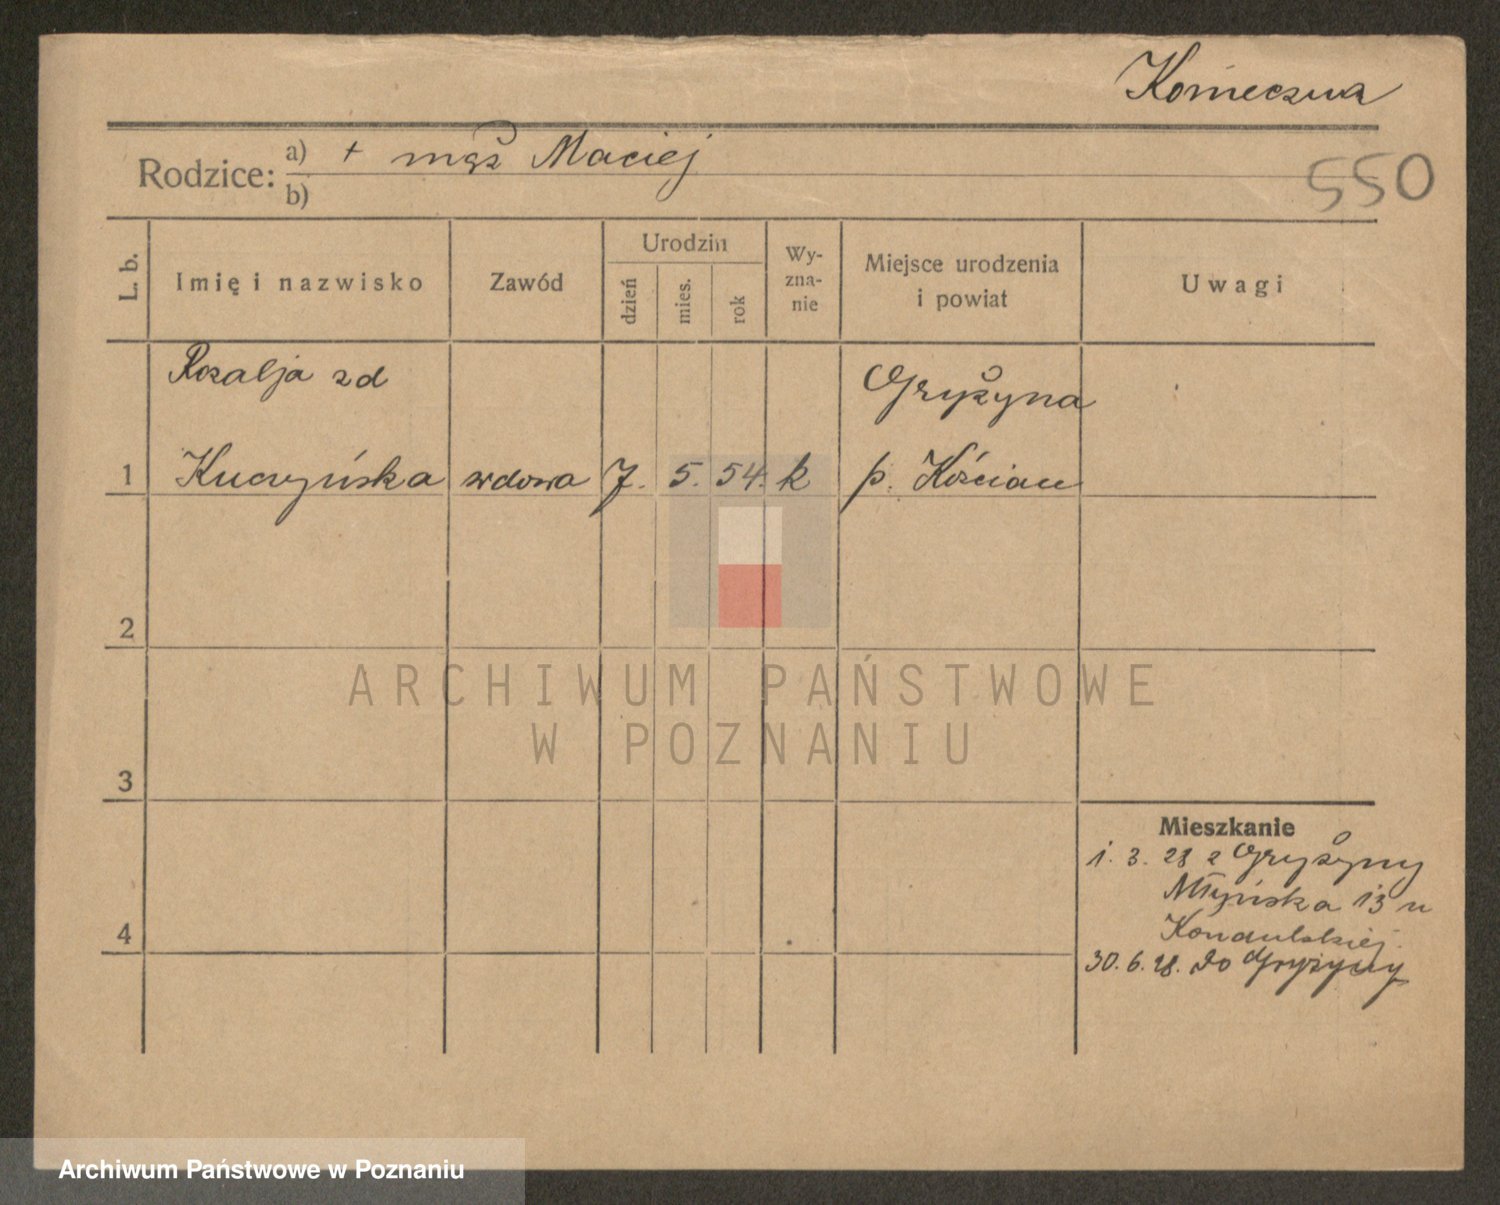 Konieczna
Rodzice: a) + mąż Maciej
b)
550
L. b.
Imię i nazwisko
Zawód
Urodzin
dzień
mies.
rok
Wy-
zna-
nie
Miejsce urodzenia
i powiat
Uwagi
Rozalja zd
Gryżyna
1 Kuczyńska wdowa 7. 5. 54. k p. Kościan
2
ARCHIWUM PAŃSTWOWE
W POZNANIU
3
Mieszkanie
1. 3. 28 z Gryżyny
Młyńska 13 u
4
30. 6. 28. do Gryżyny
Archiwum Państwowe w Poznaniu